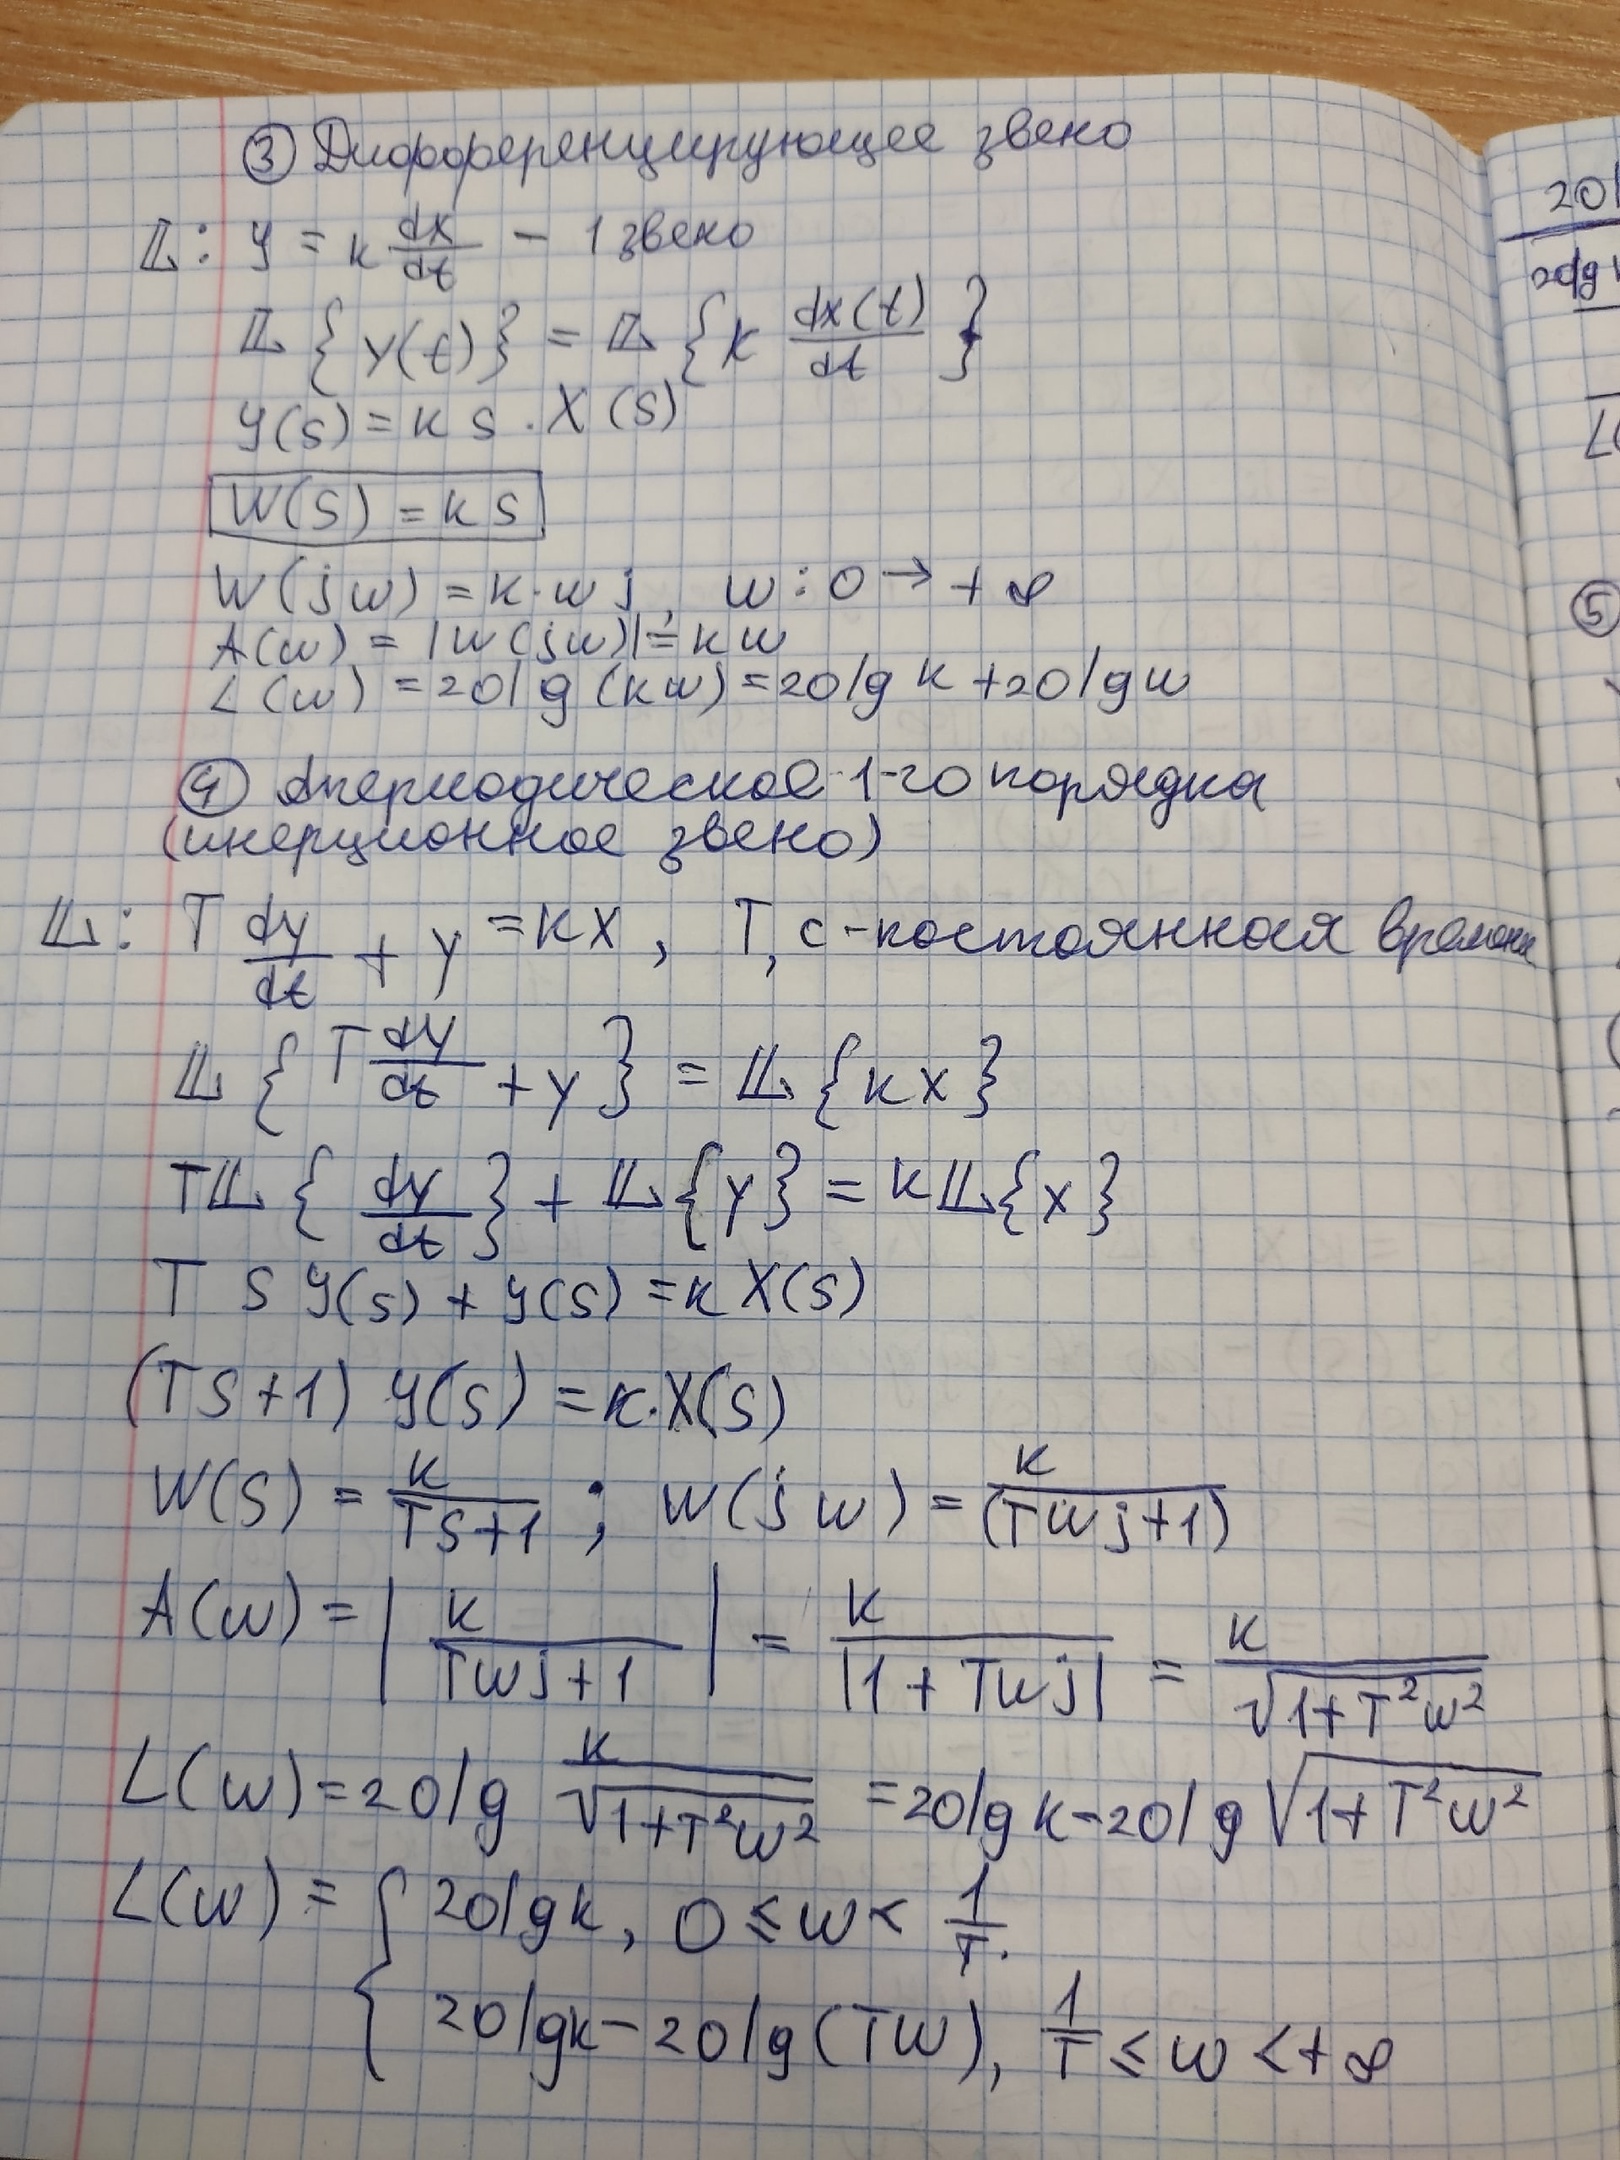 ③ Дифференцирующее звено
𝕃: y = k dx/dt - 1 звено
𝕃 { y(t) } = 𝕃 { k dx(t)/dt }
Y(s) = k s · X(s)
W(s) = k s
W(jw) = k·w j, w : 0 → + ∞
A(w) = |W(jw)| = k w
L(w) = 20lg(kw) = 20lg k + 20lg w
④ Апериодическое 1-го порядка
(инерционное звено)
𝕃: T dy/dt + y = kx, T, c - постоянная времени
𝕃 { T dy/dt + y } = 𝕃 { k x }
T𝕃 { dy/dt } + 𝕃 { y } = k𝕃 { x }
T s Y(s) + Y(s) = k X(s)
(Ts+1) Y(s) = k·X(s)
W(s) = k/(Ts+1) ; W(jw) = k/(Twj+1)
A(w) = | k/(Twj+1) | = k/|1+Twj| = k/√(1+T²w²)
L(w) = 20lg k/√(1+T²w²) = 20lg k - 20lg √(1+T²w²)
L(w) = { 20lgk, 0 ≤ w < 1/T.
20lgk - 20lg(Tw), 1/T ≤ w < + ∞
20l
20lg
L(
⑤